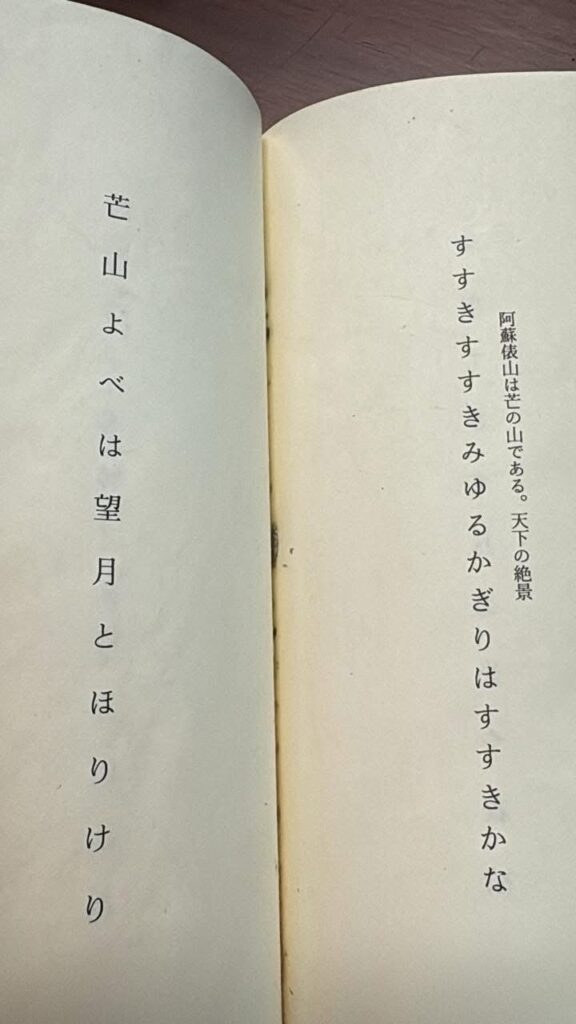 阿蘇俵山は芒の山である。天下の絶景
すすきすすきみゆるかぎりはすすきかな
芒山よべは望月とほりけり